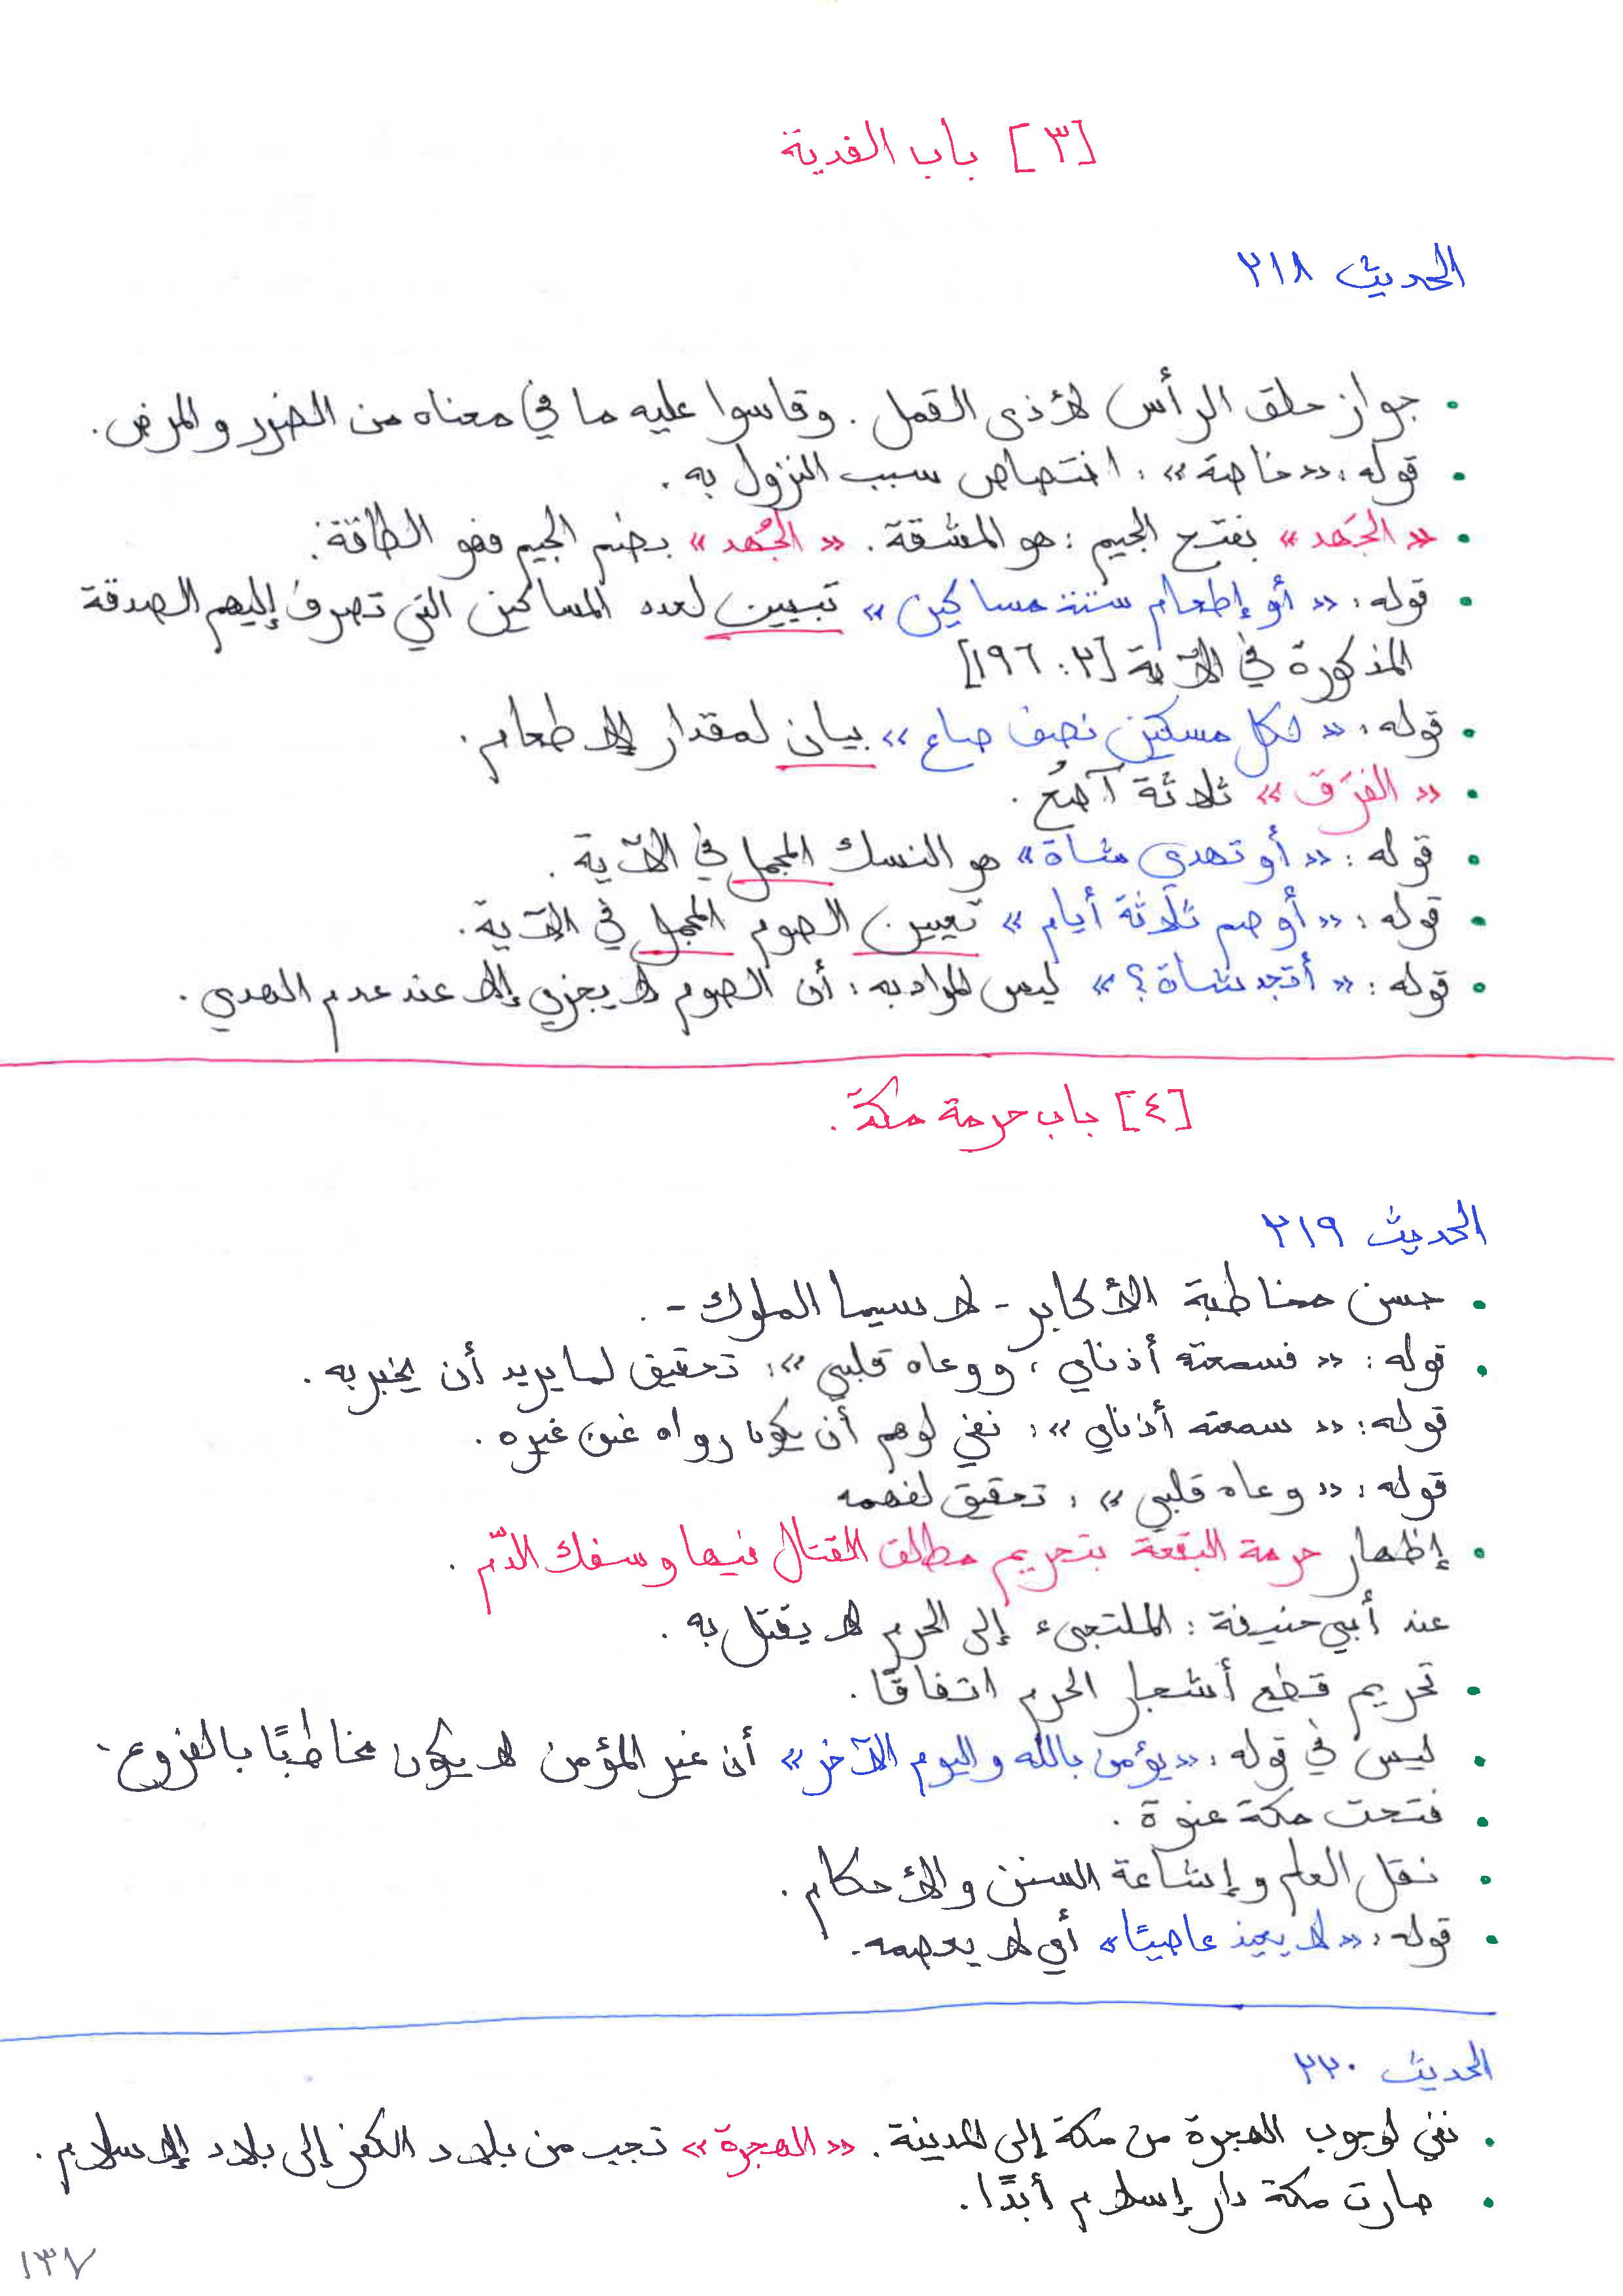 [٣] باب الفدية
الحديث ٢١٨
• جواز حلق الرأس لأذى القمل. وقاسوا عليه ما في معناه من الضرر والمرض.
• قوله: «خاصة»: اختصاص سبب النزول به.
• «الجَهد» بفتح الجيم: هو المشقة. «الجُهد» بضم الجيم فهو الطاقة.
• قوله: «أو إطعام ستة مساكين» تبيين لعدد المساكين التي تصرف إليهم الصدقة
المذكورة في الآية [٢: ١٩٦]
• قوله: «لكل مسكين نصف صاع» بيان لمقدار الإطعام.
• «الفَرَق» ثلاثة آصُع.
• قوله: «أو تهدي شاة» هو النسك المجمل في الآية.
• قوله: «أو صم ثلاثة أيام» تعيين الصوم المجمل في الآية.
• قوله: «أتجد شاة؟» ليس المراد به: أن الصوم لا يجزي إلا عند عدم الهدي.
[٤] باب حرمة مكة.
الحديث ٢١٩
• حسن مخاطبة الأكابر - لا سيما الملوك -.
• قوله: «فسمعته أذناي، ووعاه قلبي»: تحقيق لما يريد أن يخبر به.
قوله: «سمعته أذناي»: نفي لوهم أن يكون رواه عن غيره.
قوله: «وعاه قلبي»: تحقيق لفهمه
• إظهار حرمة البقعة بتحريم مطلق القتال فيها وسفك الدّم.
عند أبي حنيفة: الملتجىء إلى الحرم لا يقتل به.
• تحريم قطع أشجار الحرم اتفاقًا.
• ليس في قوله: «يؤمن بالله واليوم الآخر» أن غير المؤمن لا يكون مخاطبًا بالفروع.
• فتحت مكة عنوة.
• نقل العلم وإشاعة السنن والأحكام.
• قوله: «لا يعيذ عاصيًا» أي لا يعصمه.
الحديث ٢٢٠
• نفي لوجوب الهجرة من مكة إلى المدينة. «الهجرة» تجب من بلاد الكفر إلى بلاد الإسلام.
• صارت مكة دار إسلام أبدًا.
١٣٧